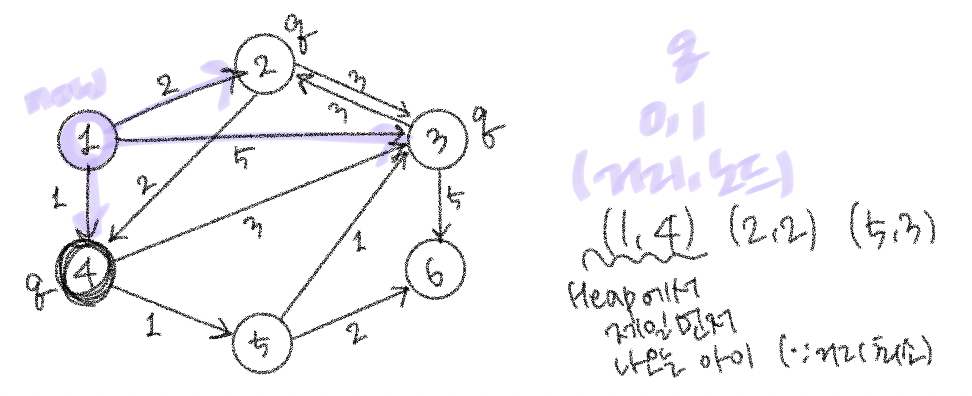 q
2
2
3
3
now
1
5
3
q
1
2
3
5
4
q
1
1
6
5
2
0,1
(거리,노드)
(1,4) (2,2) (5,3)
Heap에서
제일먼저
나온 아이 (∵거리최소)